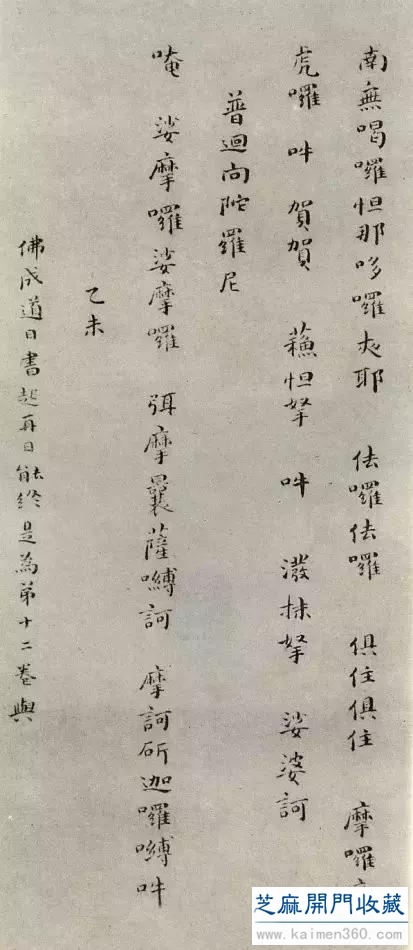 南無喝囉怛那哆囉夜耶 佉囉佉囉 俱住俱住 摩囉
虎囉 吽 賀賀 蘓怛拏 吽 潑抹拏 娑婆訶
普迴向陀羅尼
唵 娑摩囉娑摩囉 弭摩曩薩嚩訶 摩訶斫迦囉嚩吽
乙未
佛成道日書起再日能終是為第十二卷與
芝麻開門收藏
www.kaimen360.com